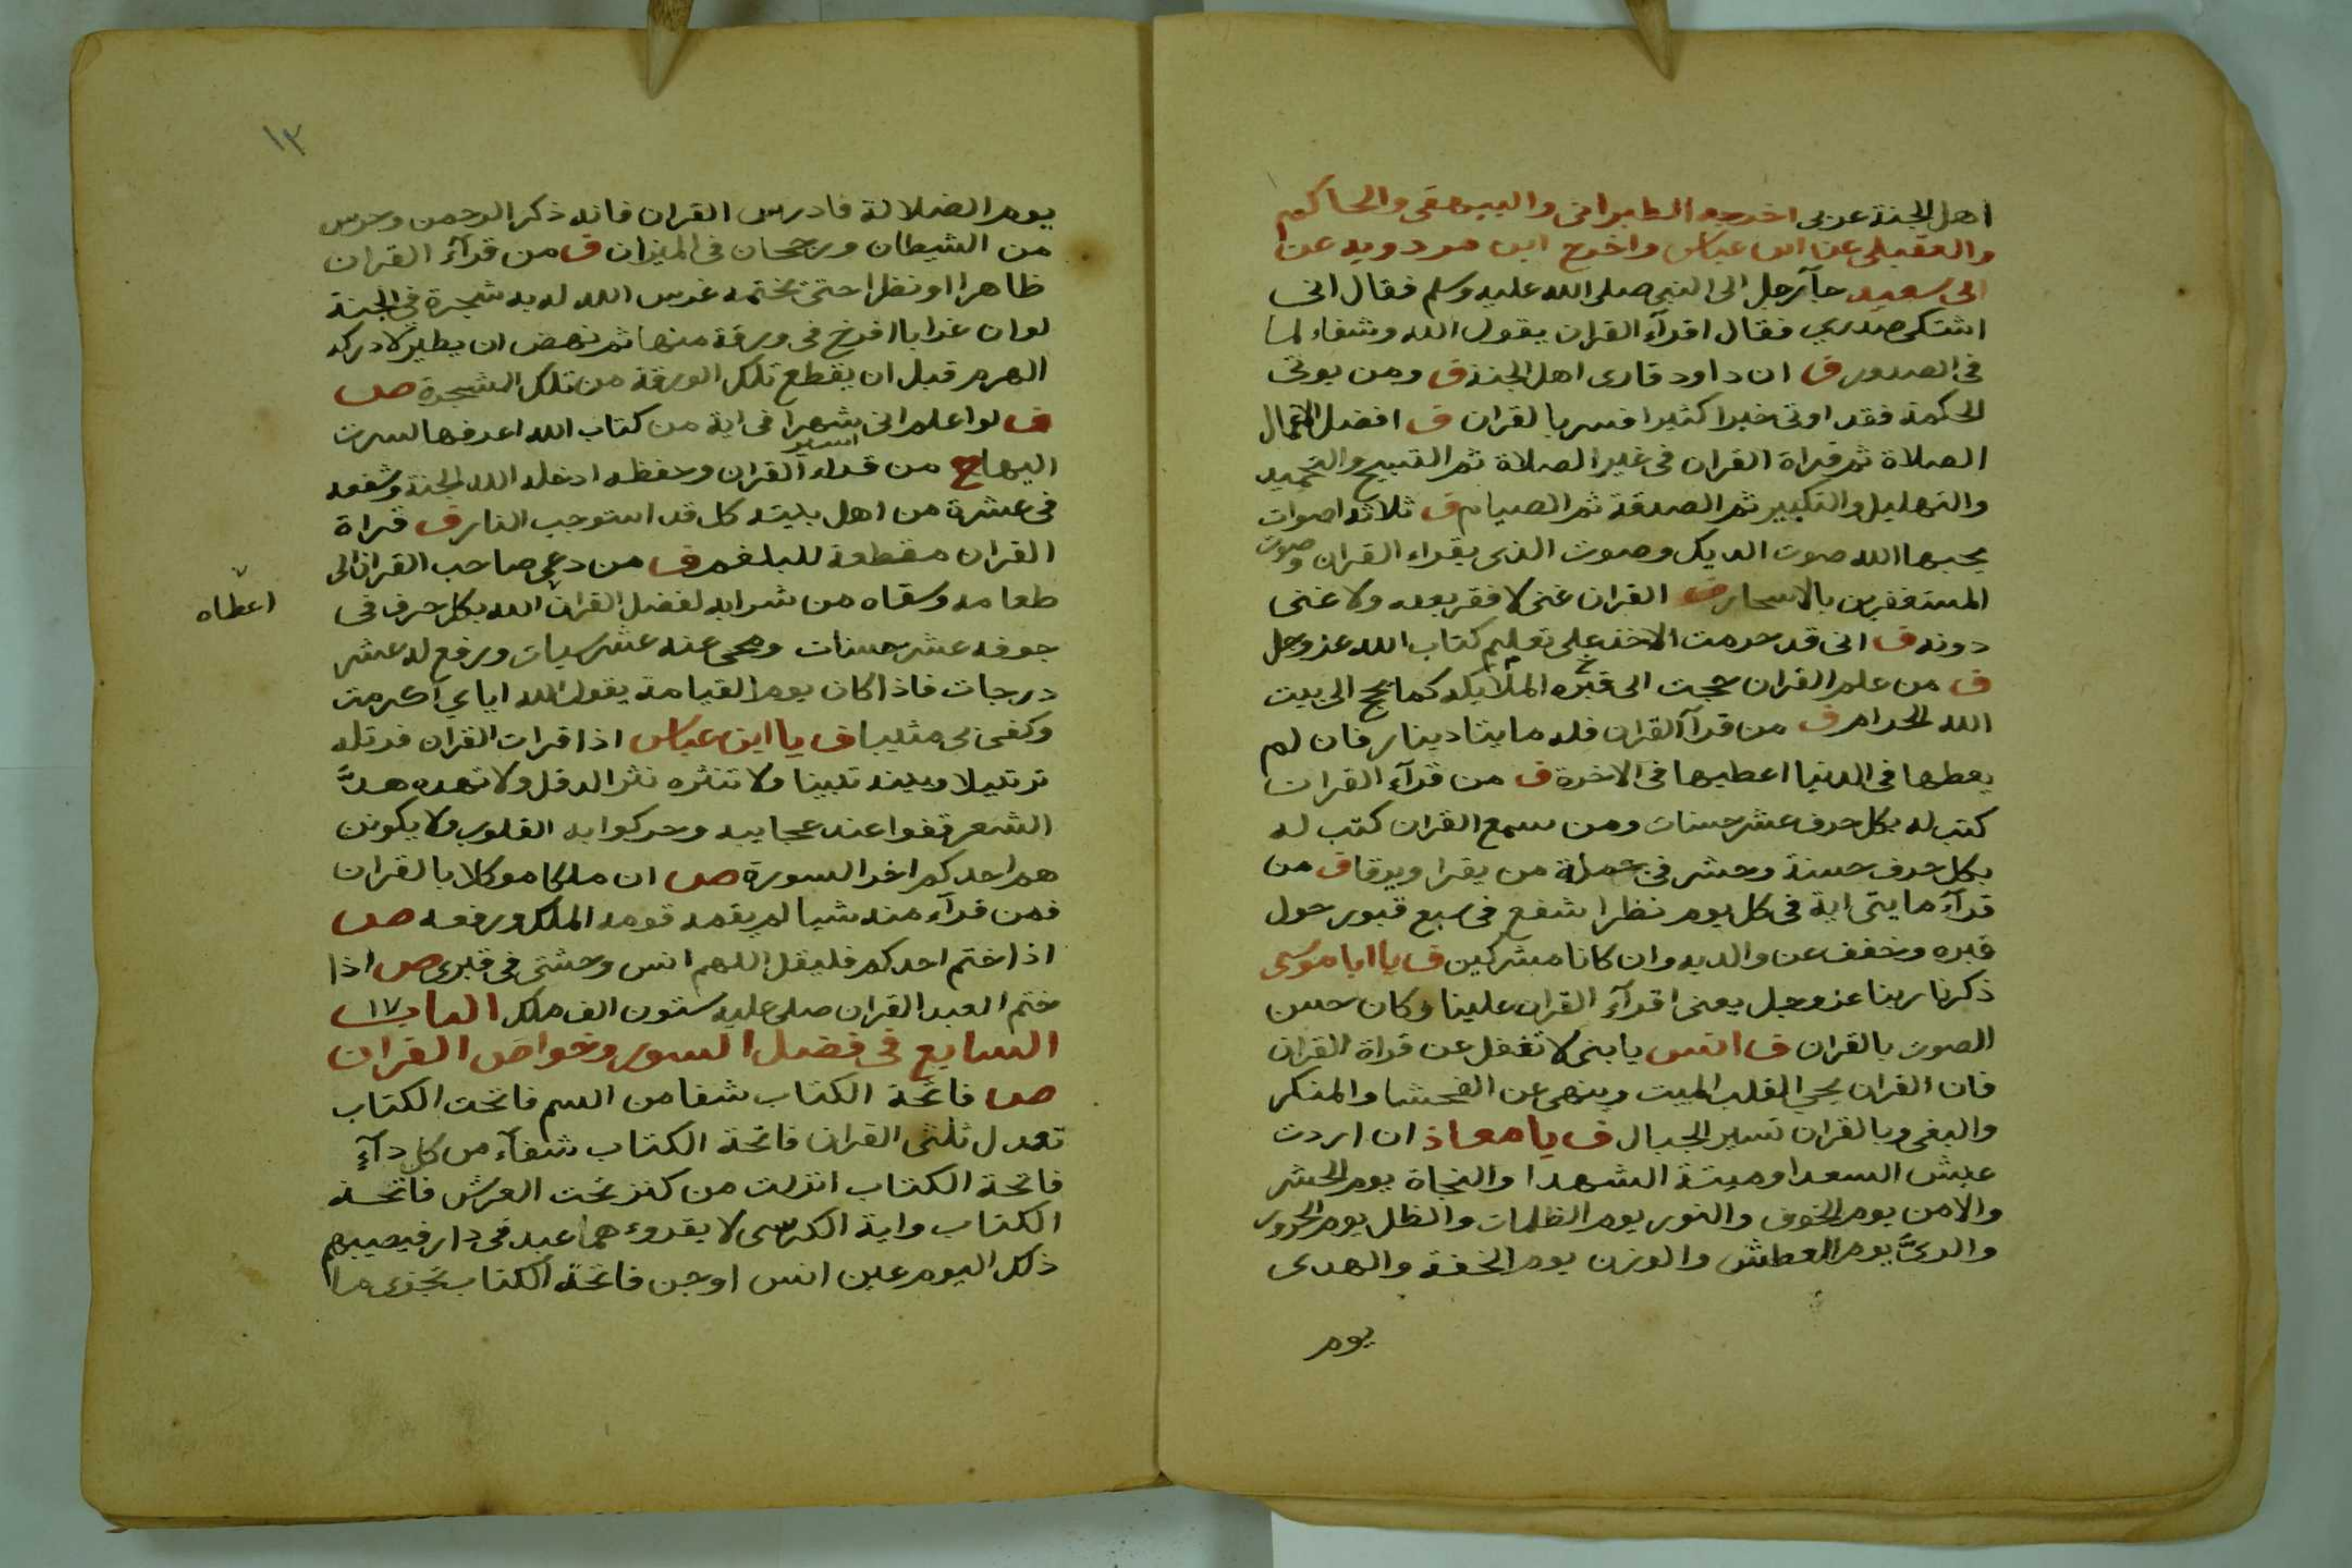 اهل الجنة عربى اخرجه الطبرانى والبيهقى والحاكم
والعقيلى عن ابن عباس واخرج ابن مردويه عن
ابى سعيد جآء رجل الى النبي صلى الله عليه وسلم فقال انى
اشتكى صدرى فقال اقرآء القران يقول الله وشفاء لما
فى الصدور ق ان داود قارى اهل الجنة ق ومن يوتى
الحكمة فقد اوتى خيرا كثيرا فسر بالقران ق افضل الاعمال
الصلاة ثم قراة القران فى غير الصلاة ثم التسبيح والتحميد
والتهليل والتكبير ثم الصدقة ثم الصيام ق ثلاثه اصوات
يحبها الله صوت الديك وصوت الذى يقراء القران وصوت
المستغفرين بالاسحار ق القران غنى لا فقر بعده ولا غنى
دونه ق انى قد حرمت الاخذ على تعليم كتاب الله عز وجل
ق من علم القران حجت الى قبره الملايكه كما يحج الى بيت
الله الحرام ق من قرآ القران فله مايتا دينار فان لم
يعطها فى الدنيا اعطيها فى الاخرة ق من قرآء القران
كتب له بكل حرف عشر حسنات ومن سمع القران كتب له
بكل حرف حسنة وحشر فى جملة من يقرا ويرقا ق من
قرآء مايتى اية فى كل يوم نظرا شفع فى سبع قبور حول
قبره وخفف عن والديه وان كانا مشركين ق يا ابا موسى
ذكرنا ربنا عز وجل يعنى اقرآء القران علينا وكان حسن
الصوت بالقران ق انس يا بنى لا تغفل عن قراة القران
فان القران يحيي القلب الميت وينهى عن الفحشا والمنكر
والبغى وبالقران تسير الجبال ق يا معاذ ان اردت
عيش السعدا وميتة الشهدا والنجاة يوم الحشر
والامن يوم الخوف والنور يوم الظلمات والظل يوم الحرور
والرىَّ يوم العطش والوزن يوم الخفة والهدى
يوم
١٣
يوم الضلالة فادرس القران فانه ذكر الرحمن وحرس
من الشيطان ورجحان فى الميزان ق من قرآء القران
ظاهرا او نظرا حتى يختمه غرس الله له به شجرة فى الجنة
لو ان غرابا افرخ فى ورقة منها ثم نهض ان يطير لادركه
الهرم قبل ان يقطع تلك الورقة من تلك الشجرة ص
ق لو اعلم انى شهرا فى اية من كتاب الله اعرفها لسرت
اسير
اليها ح من قراء القران وحفظه ادخله الله الجنة وشفعه
فى عشرة من اهل بيته كل قد استوجب النار ق قراة
القران مقطعة للبلغم ق من دعى صاحب القران الى
طعامه وسقاه من شرابه لفضل القران الله بكل حرف فى
اعطاه
جوفه عشر حسنات ومحى عنه عشر سيات ورفع له عشر
درجات فاذا كان يوم القيامة يقول الله اياي اكرمت
وكفى بى مثيبا ق يا ابن عباس اذا قرات القران فرتله
ترتيلا وبينه تبيينا ولا تنثره نثر الدقل ولا تهده هدَّ
الشعر قفوا عند عجايبه وحركوا به القلوب ولا يكونن
هم احدكم اخر السورة ص ان ملكا موكلا بالقران
فمن قرآء منه شيا لم يقمه قومه الملك ورفعه ص
اذا ختم احدكم فليقل اللهم انس وحشتى فى قبرى ص اذا
ختم العبد القران صلى عليه ستون الف ملك الباب ١٧
السابع فى فضل السور وخواص القران
ص فاتحة الكتاب شفا من السم فاتحت الكتاب
تعدل ثلثى القران فاتحة الكتاب شفآء من كل دآء
فاتحة الكتاب انزلت من كنز تحت العرش فاتحة
الكتاب واية الكرسى لا يقروء هما عبد فى دار فيصيبهم
ذلك اليوم عين انس او جن فاتحة الكتاب تجزى ما